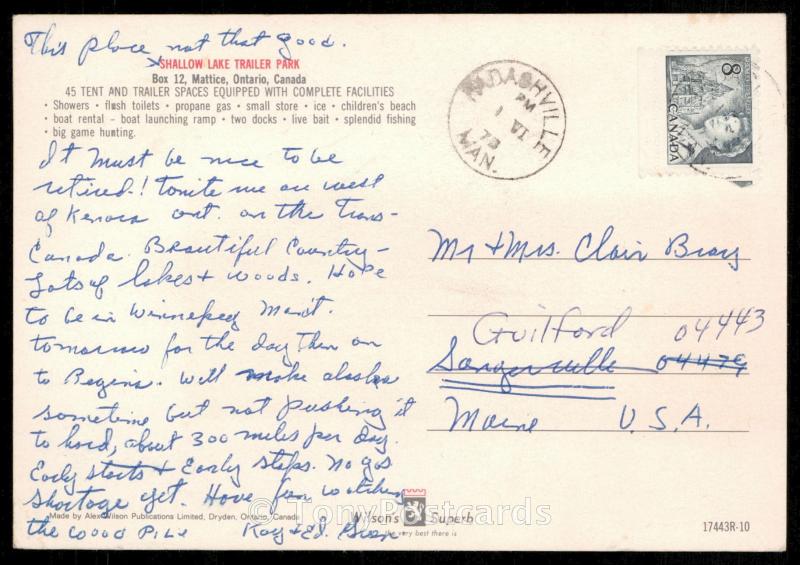 This place not that good.
SHALLOW LAKE TRAILER PARK
Box 12, Mattice, Ontario, Canada
45 TENT AND TRAILER SPACES EQUIPPED WITH COMPLETE FACILITIES
• Showers • flush toilets • propane gas • small store • ice • children's beach
• boat rental – boat launching ramp • two docks • live bait • splendid fishing
• big game hunting.
It must be nice to be
retired! Tonite we are west
of Kenora Ont. on the Trans-
Canada. Beautiful Country –
Lots of lakes + woods. Hope
to be in Winnepeg Manit.
tomorrow for the day then on
to Regina. Will make alaska
sometime but not pushing it
to hard, about 300 miles per day.
Early starts + Early stops. No gas
shortage yet. Have fun watching
the wood PILE Ray + Ed.
Made by Alex Wilson Publications Limited, Dryden, Ontario, Canada
Wilson's Superb
the very best there is
17443R-10
© TonyPostcards
PM
1 VI
73
MAN.
8
CANADA
Mr + Mrs. Clair Bray
Guilford 04443
Sangerville 04479
Maine U.S.A.